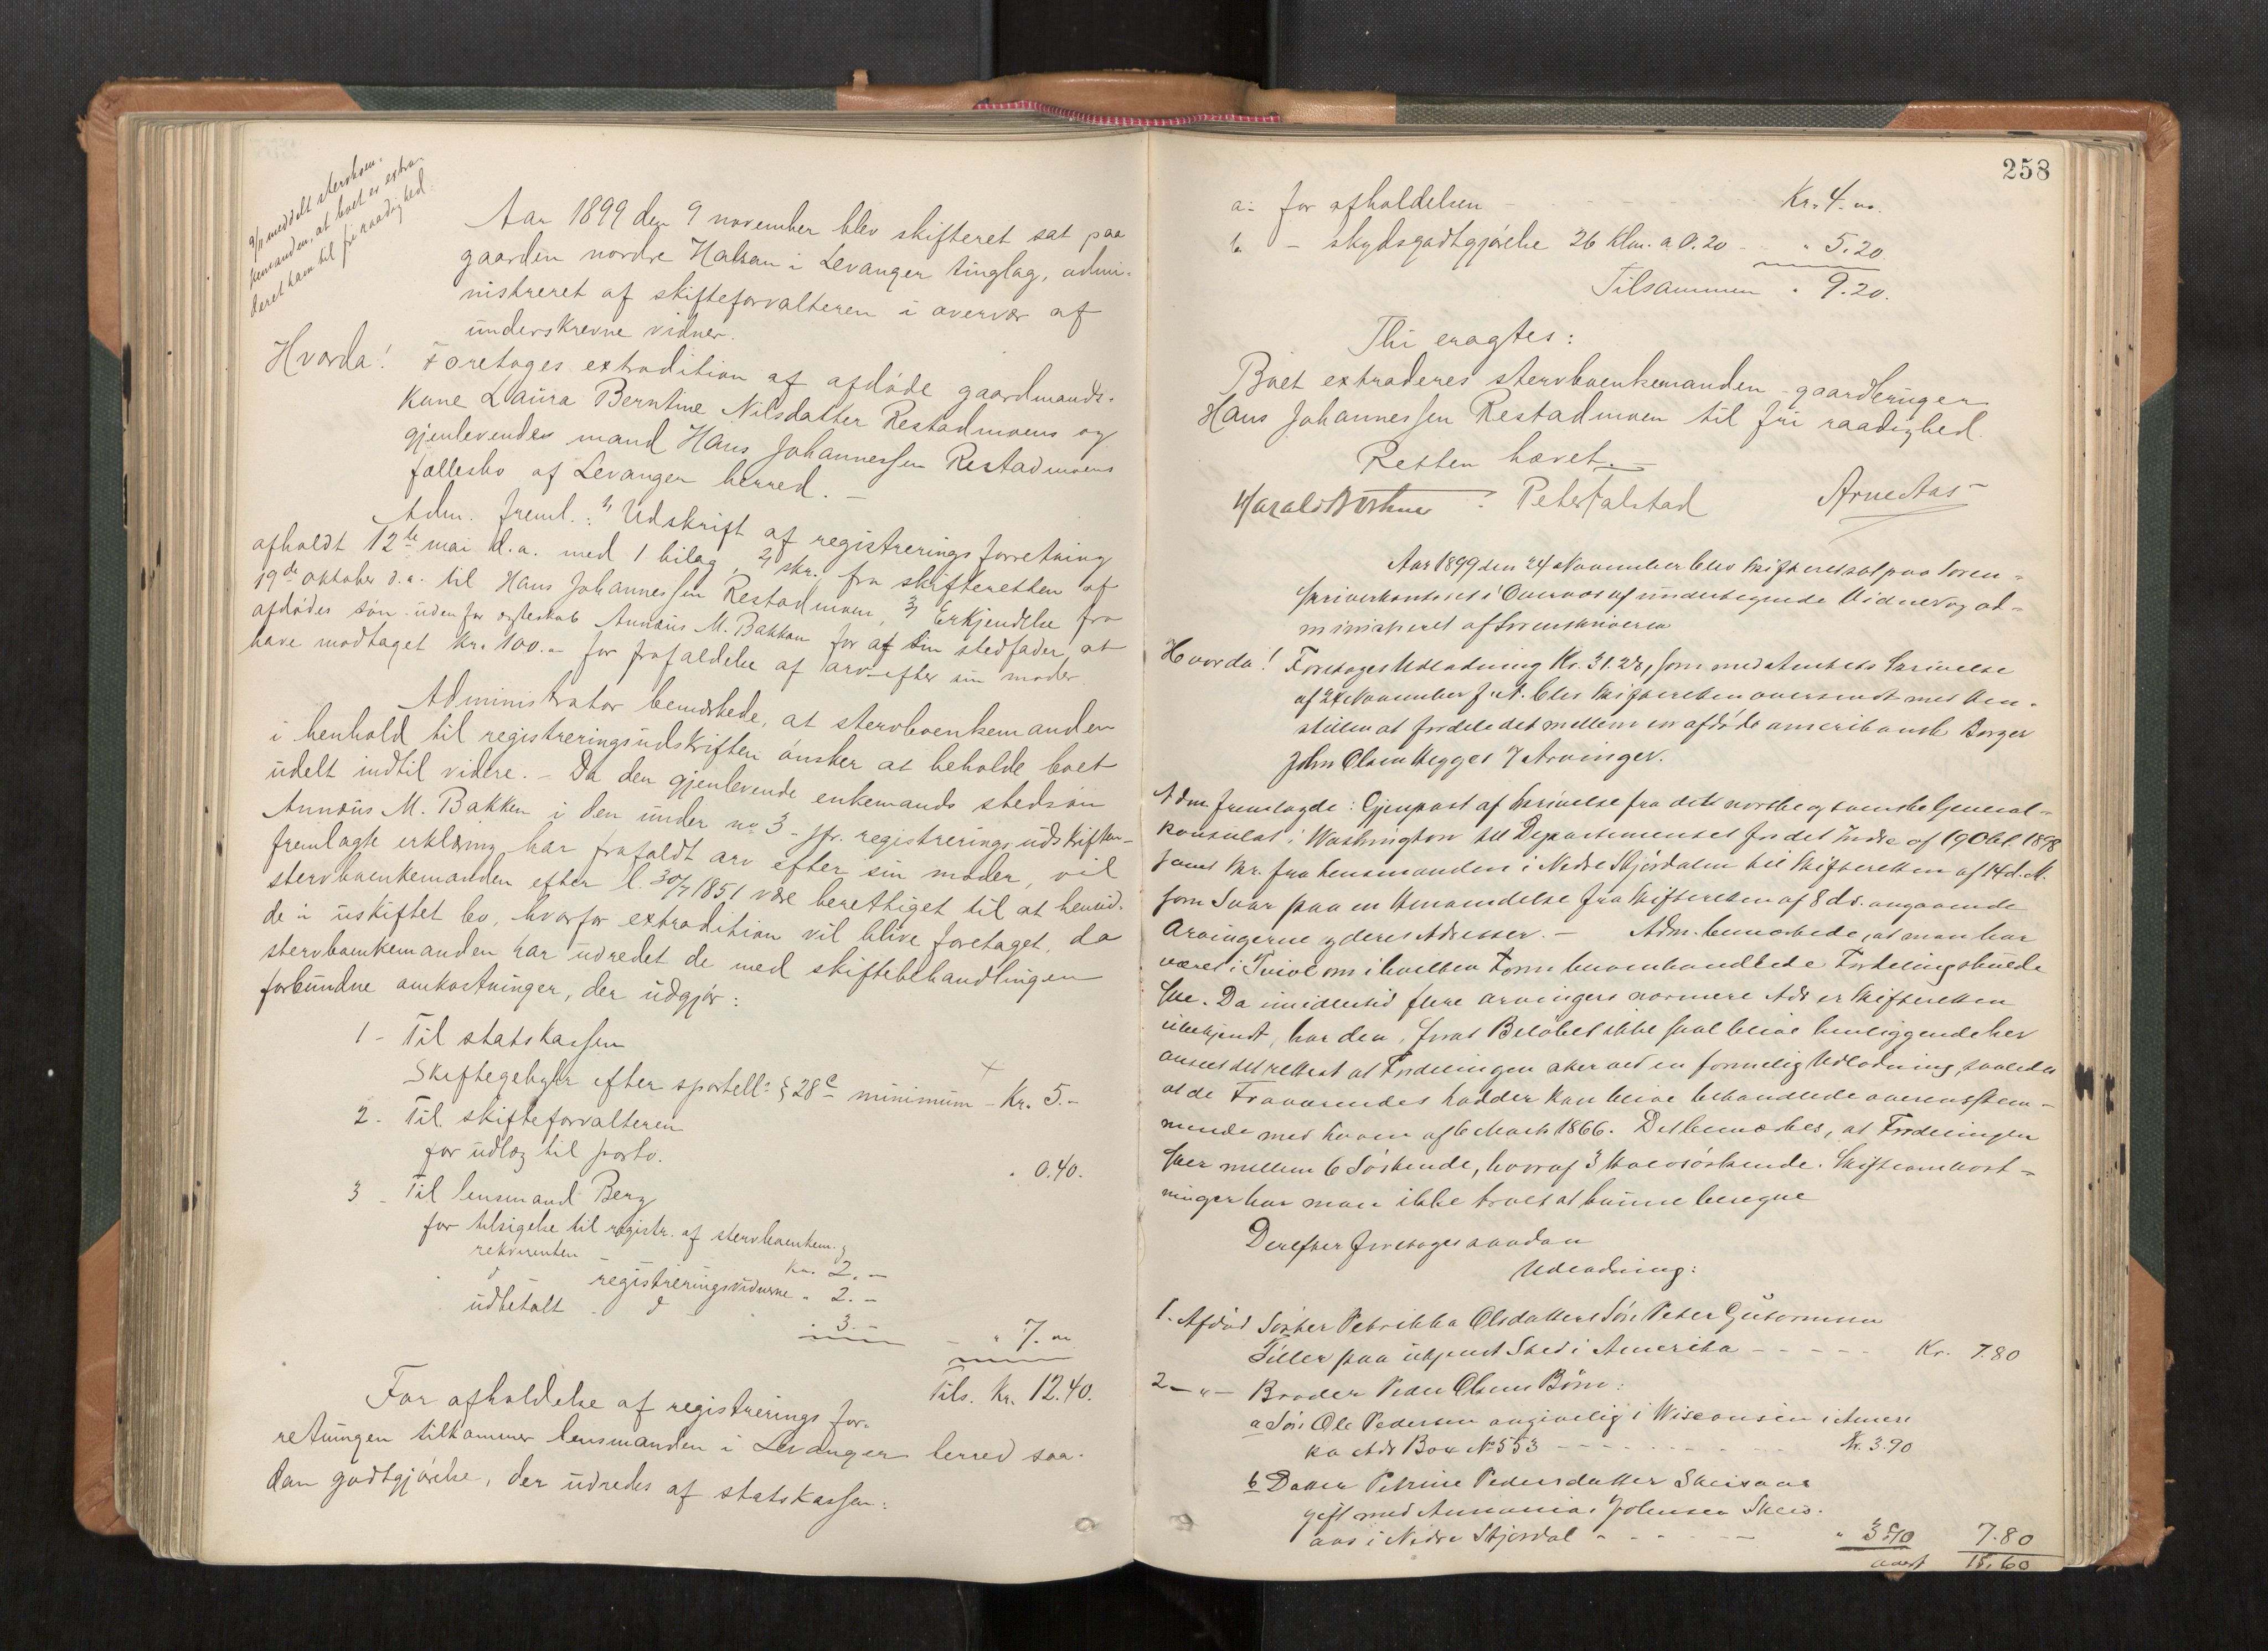 9/11 meddelt stervboen-
kemanden, at boet er extra-
deret ham til fri raadighed.
Aar 1899 den 9 november blev skifteret sat paa
gaarden nordre Halsan i Levanger tinglag, admi-
nistreret af skifteforvalteren i overvær af
underskrevne vidner.
Hvorda! Foretoges extradition af afdøde gaardmands-
kone Laura Berntine Nilsdatter Restadmoens og
gjenlevendes mand Hans Johannessen Restadmoens
fællesbo af Levanger herred. —
Adm. freml.: 1) Udskrift af registreringsforretning
afholdt 12te mai d.a. med 1 bilag, 2 skr. fra skifteretten af
19de oktober d.a. til Hans Johannessen Restadmoen, 3) Erkjendelse fra
afdødes søn udenfor ægteskab Annæus M. Bakken for af sin stedfader at
have modtaget kr. 100.- for frafaldelse af arv efter sin moder.
Administrator bemærkede, at stervboenkemanden
i henhold til registreringsudskriften ønsker at beholde boet
udelt indtil videre. – Da den gjenlevende enkemands stedsøn
Annæus M. Bakken i den under no 3 - jfr. registreringsudskriften -
fremlagte erklæring har frafaldt arv efter sin moder, vil
stervboenkemanden efter l. 30/7 1851 være berettiget til at hensid-
de i uskiftet bo, hvorfor extradition vil blive foretaget, da
stervboenkemanden har udredet de med skiftebehandlingen
forbundne omkostninger, der udgjør:
1 - Til statskassen
Skiftegebyhr efter sportell: § 28 c minimum - Kr. 5.-
2 - Til skifteforvalteren
for udlæg til porto. " 0.40.
3 - Til lensmand Berg
for tilsigelse til registr. af stervboenkem. &
rekvirenten - Kr. 2.-
d registreringsvidnerne " 2.-
udbetalt - d - " 3.- - " 7.-
Tils. Kr. 12.40.
For afholdelse af registreringsfor-
retningen tilkommer lensmanden i Levanger herred saa-
dan godtgjørelse, der udredes af statskassen:
258
a: for afholdelsen - Kr. 4.-
b. - skydsgodtgjørelse 26 klm. a 0.20 - " 5.20.
Tilsammen " 9.20.
Thi eragtes:
Boet extraderes stervboenkemanden - gaardbruger
Hans Johannessen Restadmoen til fri raadighed.
Retten hævet. —
Harald Peter Falstad Arne Aas
Aar 1899 den 24 November blev Skifteret sat paa Soren-
skriverkontoret i Overvær af undertegnede Vidner og ad-
ministreret af Sorenskriveren
Hvorda! Foretoges Udlodning Kr. 31.28, som med Amtets Skrivelse
af 2 November f. A. blev Skifteretten oversendt med Hen-
stillen at fordele det mellem en afdød amerikansk Borger
John Olsen Hegges 7 Arvinger.
Adm. fremlagde: Gjenpart af Skrivelse fra det norske og svenske General-
konsulat i Washington til Departementet for det Indre af 19 Okt. 1898
samt Skr. fra Lensmanden i Nedre Stjørdalen til Skifteretten af 14 d. M.
som Svar paa en Henvendelse fra Skifteretten af 8 ds. angaaende
Arvingerne og deres Adresser. — Adm. bemærkede, at man har
været i Tvivl om i hvilken Form Fordeling skulde
ske. Da imidlertid flere Arvingers nærmere Adr. er Skifteretten
ubekjendt, har den, forat Beløbet ikke skal blive henliggende her
anseet det rettest at Fordelingen sker ved en formelig Udlodning, saaledes
at de Fraværendes Lodder kan blive behandlede overensstem-
mende med Loven af 6 Marts 1866. Det bemærkes, at Fordelingen
sker mellem 6 Søskende, hvoraf 3 Halvsøskende. Skifteomkost-
ninger har man ikke troet at kunne beregne
Derefter foretoges saadan
Udlodning:
1. Afdød Søster Petrikka Olsdatters Søn Peter Gutormsen
Tiller paa ukjent Sted i Amerika - - - - - Kr. 7.80
2 — " — Broder Peder Olsens Børn:
a Søn Ole Pedersen angivelig i Wisconsin i Ameri
ka Adr Box No 553 - - - - - - Kr. 3.90
b Datter Petrine Pedersdatter Skeisaas
gift med Annanias Johnsen Skeis-
aas i Nedre Stjørdal - - - - " 3.90 7.80
overf 15.60